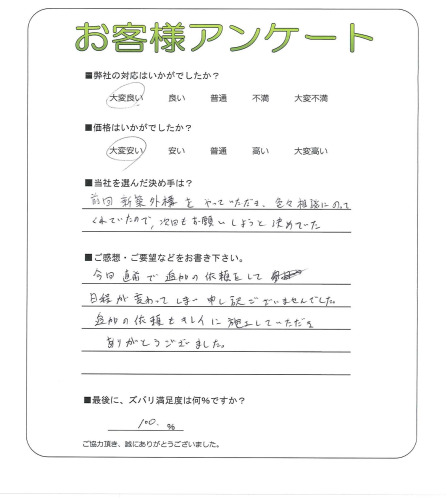 お客様アンケート
■弊社の対応はいかがでしたか？
大変良い 良い 普通 不満 大変不満
■価格はいかがでしたか？
大変安い 安い 普通 高い 大変高い
■当社を選んだ決め手は？
前回 新築外構を やっていただき、色々相談にのって
くれていたので、次回もお願いしようと決めていた
■ご感想・ご要望などをお書き下さい。
今回 直前で 追加の依頼をして
日程が変わってしまい 申し訳ございませんでした。
追加の依頼もキレイに施工していただき
ありがとうございました。
■最後に、ズバリ満足度は何％ですか？
100. ％
ご協力頂き、誠にありがとうございました。